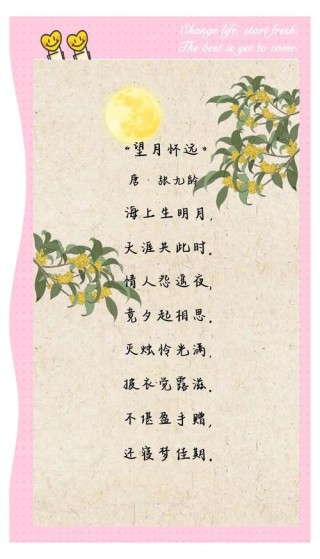 Change life, start fresh.
The best is yet to come.
“望月怀远”
唐·张九龄
海上生明月，
天涯共此时。
情人怨遥夜，
竟夕起相思。
灭烛怜光满，
披衣觉露滋。
不堪盈手赠，
还寝梦佳期。